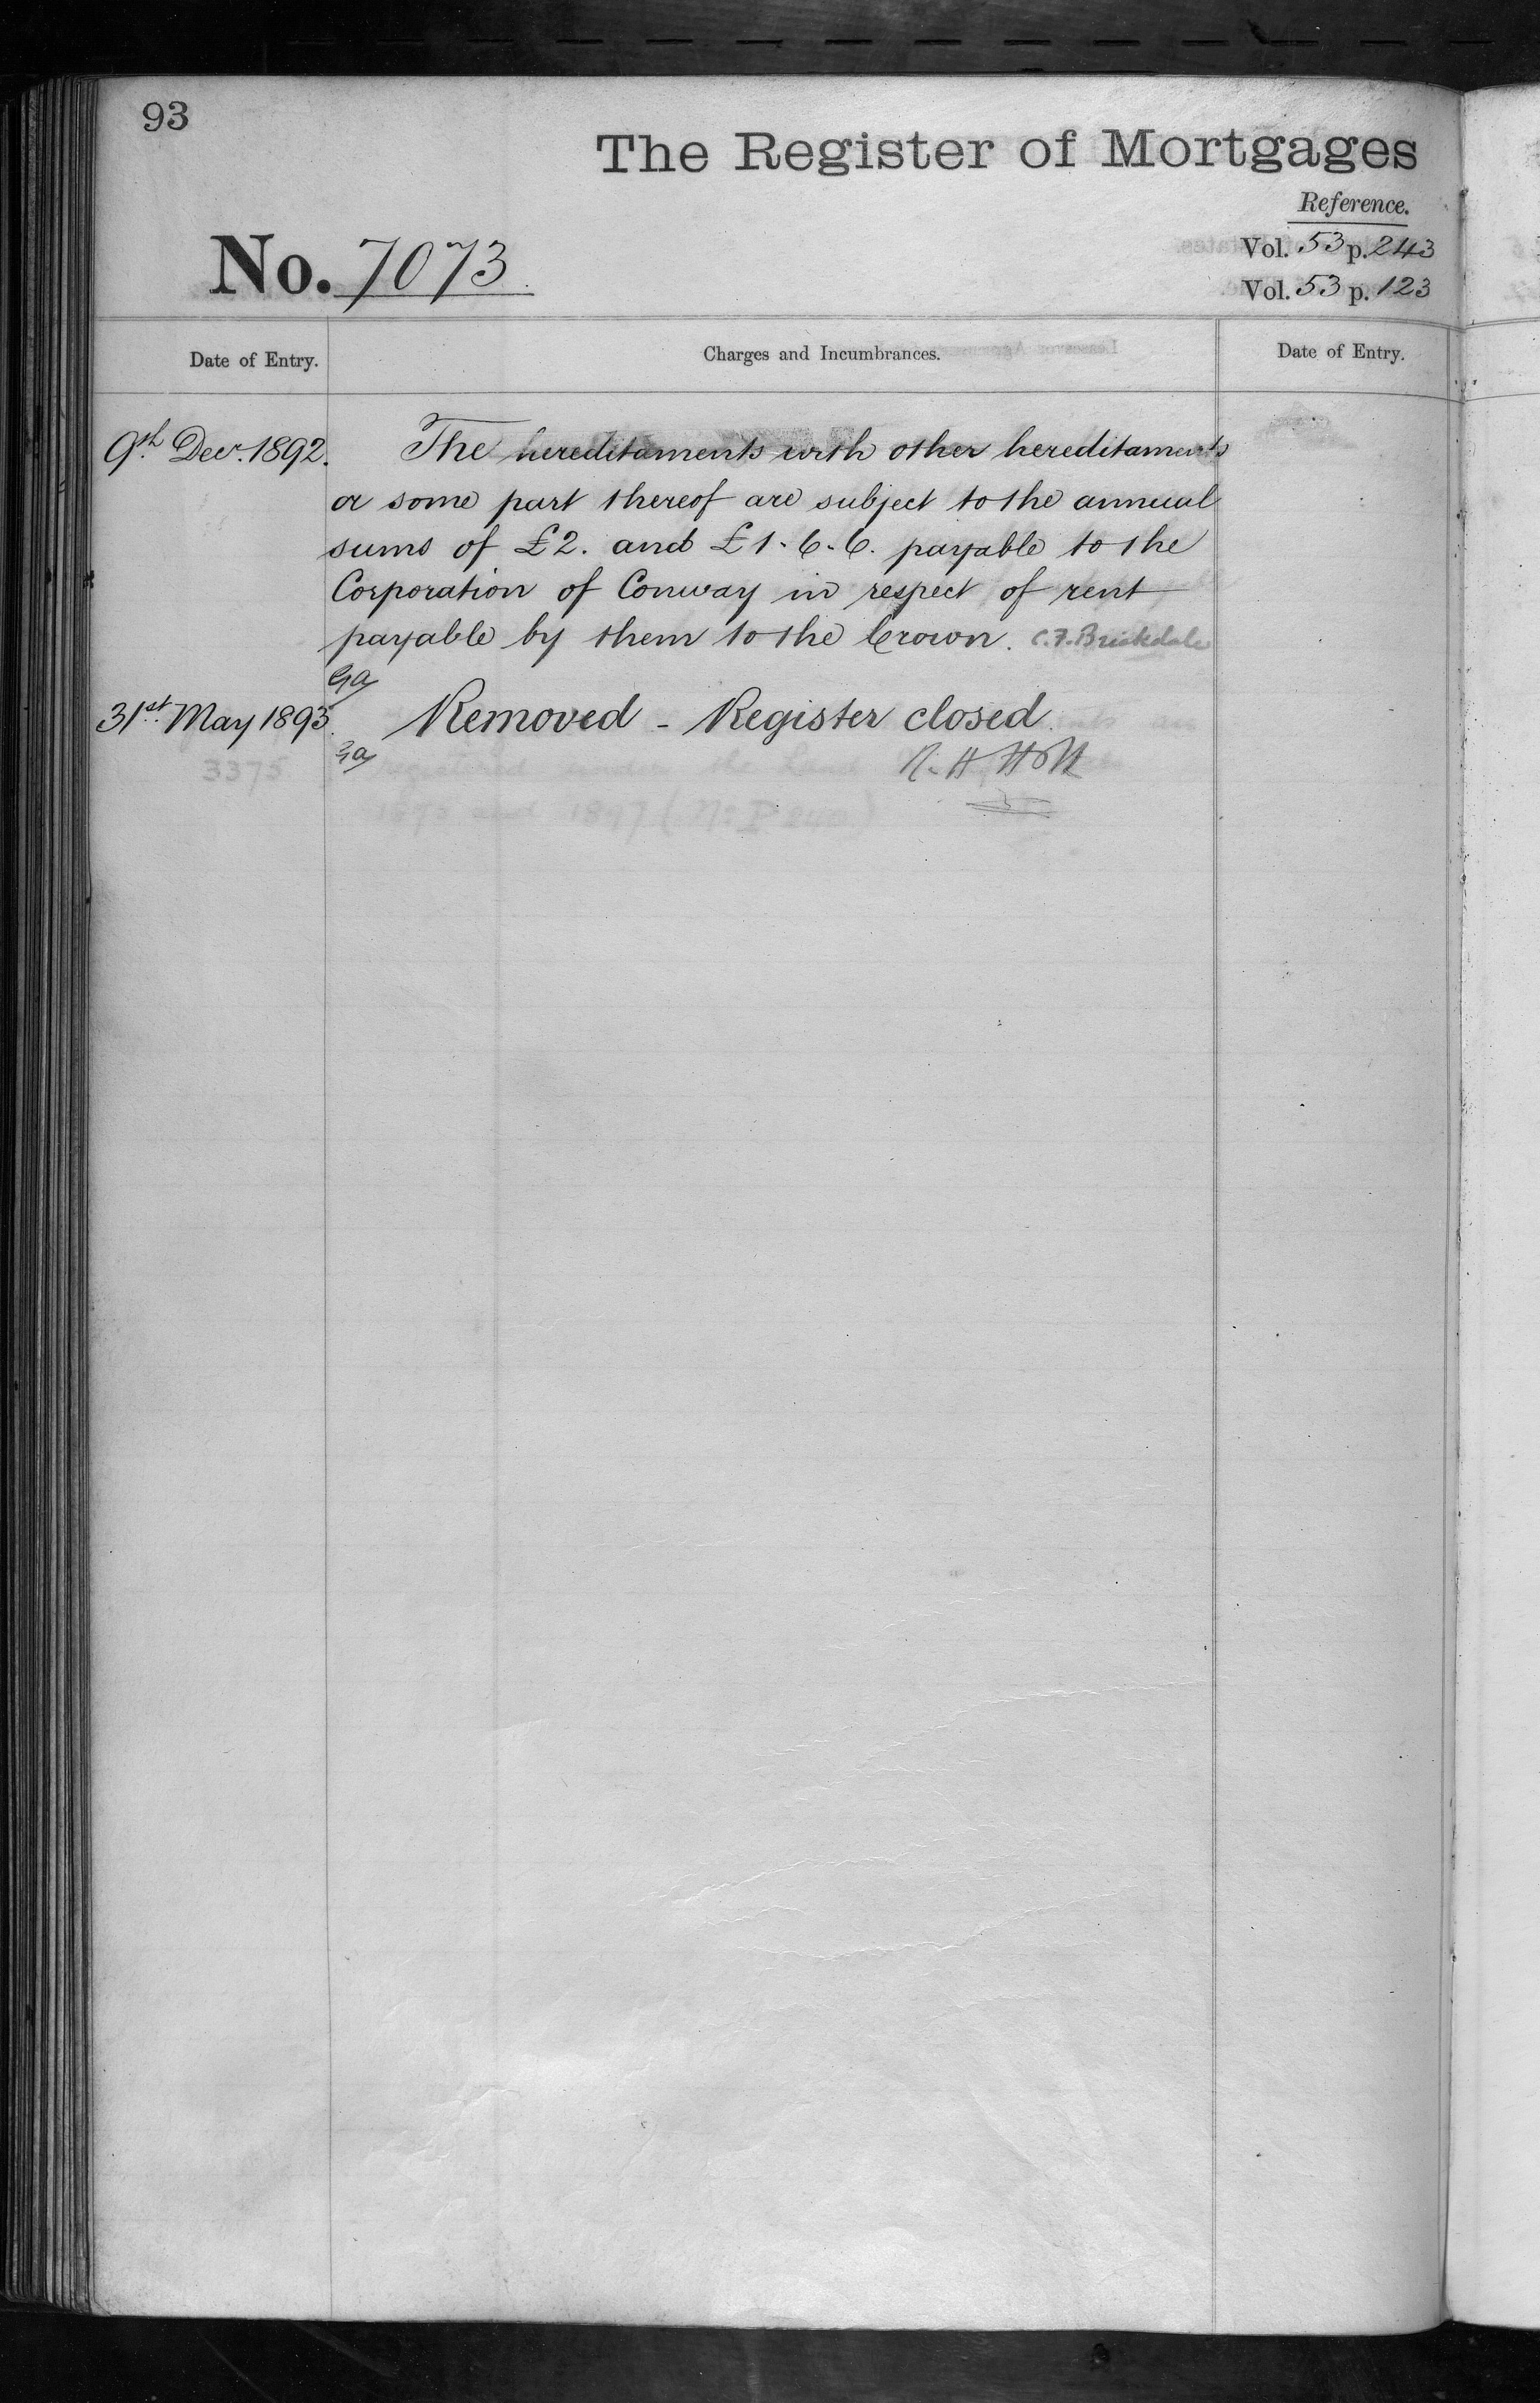 93
The Register of Mortgages
Reference.
No. 7073.
Vol. 53 p. 243
Vol. 53 p. 123
Date of Entry.
Charges and Incumbrances.
Date of Entry.
9th Decr. 1892. The hereditaments with other hereditaments
or some part thereof are subject to the annual
sums of £2. and £1-6-6. payable to the
Corporation of Conway in respect of rent
payable by them to the Crown. C.F. Brickdale
31st May 1893. Removed - Register closed.
R. H. Holt
3375
registered under the Land
1875 and 1897 (No P 240)